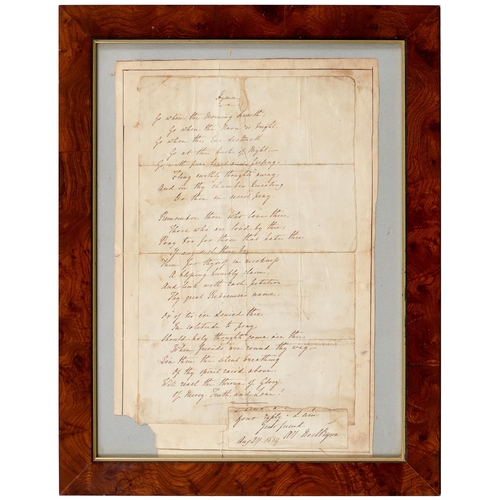 Hymn
Go when the morning shineth
Go when the Noon is bright
Go when the Eve declineth
Go at the hush of Night
Go with pure feeling
Fling earthly thoughts away
And in thy chamber kneeling
Do thou in secret pray.
Remember those who love thee
Those who are loved by thee
Pray too for those that hate thee
If any such there be
Then for thyself in meekness
A blessing humbly claim
And link with each petition
Thy great Redeemer's name.
Or if 'tis ere denied thee
In solitude to pray
Should holy thoughts come over thee
When friends are round thy way
Even then the silent breathing
Of thy spirit rais'd above
Will reach the throne of Glory
Of Mercy, Truth and Love!
Your
friend
Aug